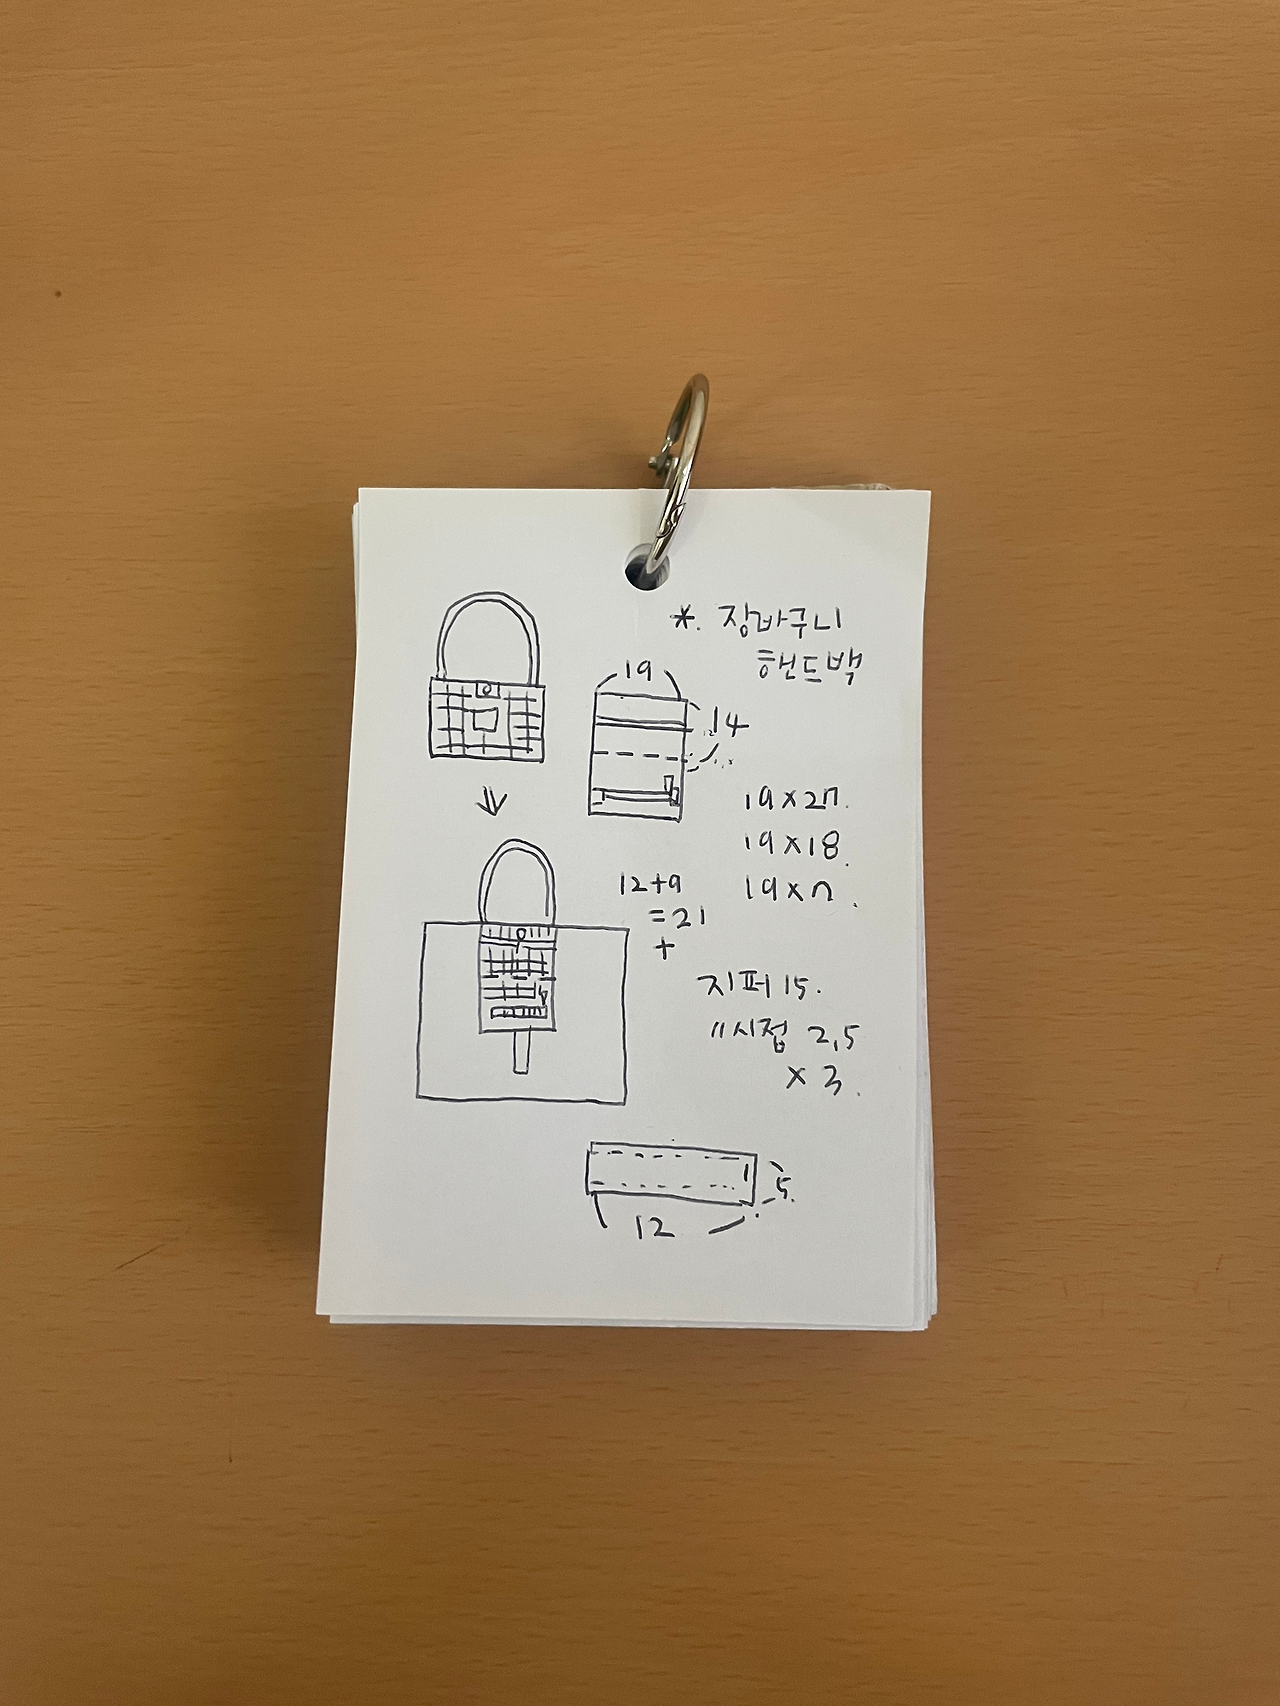 *. 장바구니
핸드백
19
14
19×27.
19×18.
19×7.
12+9
=21
+
지퍼 15.
〃시접 2.5
×3.
5.
12